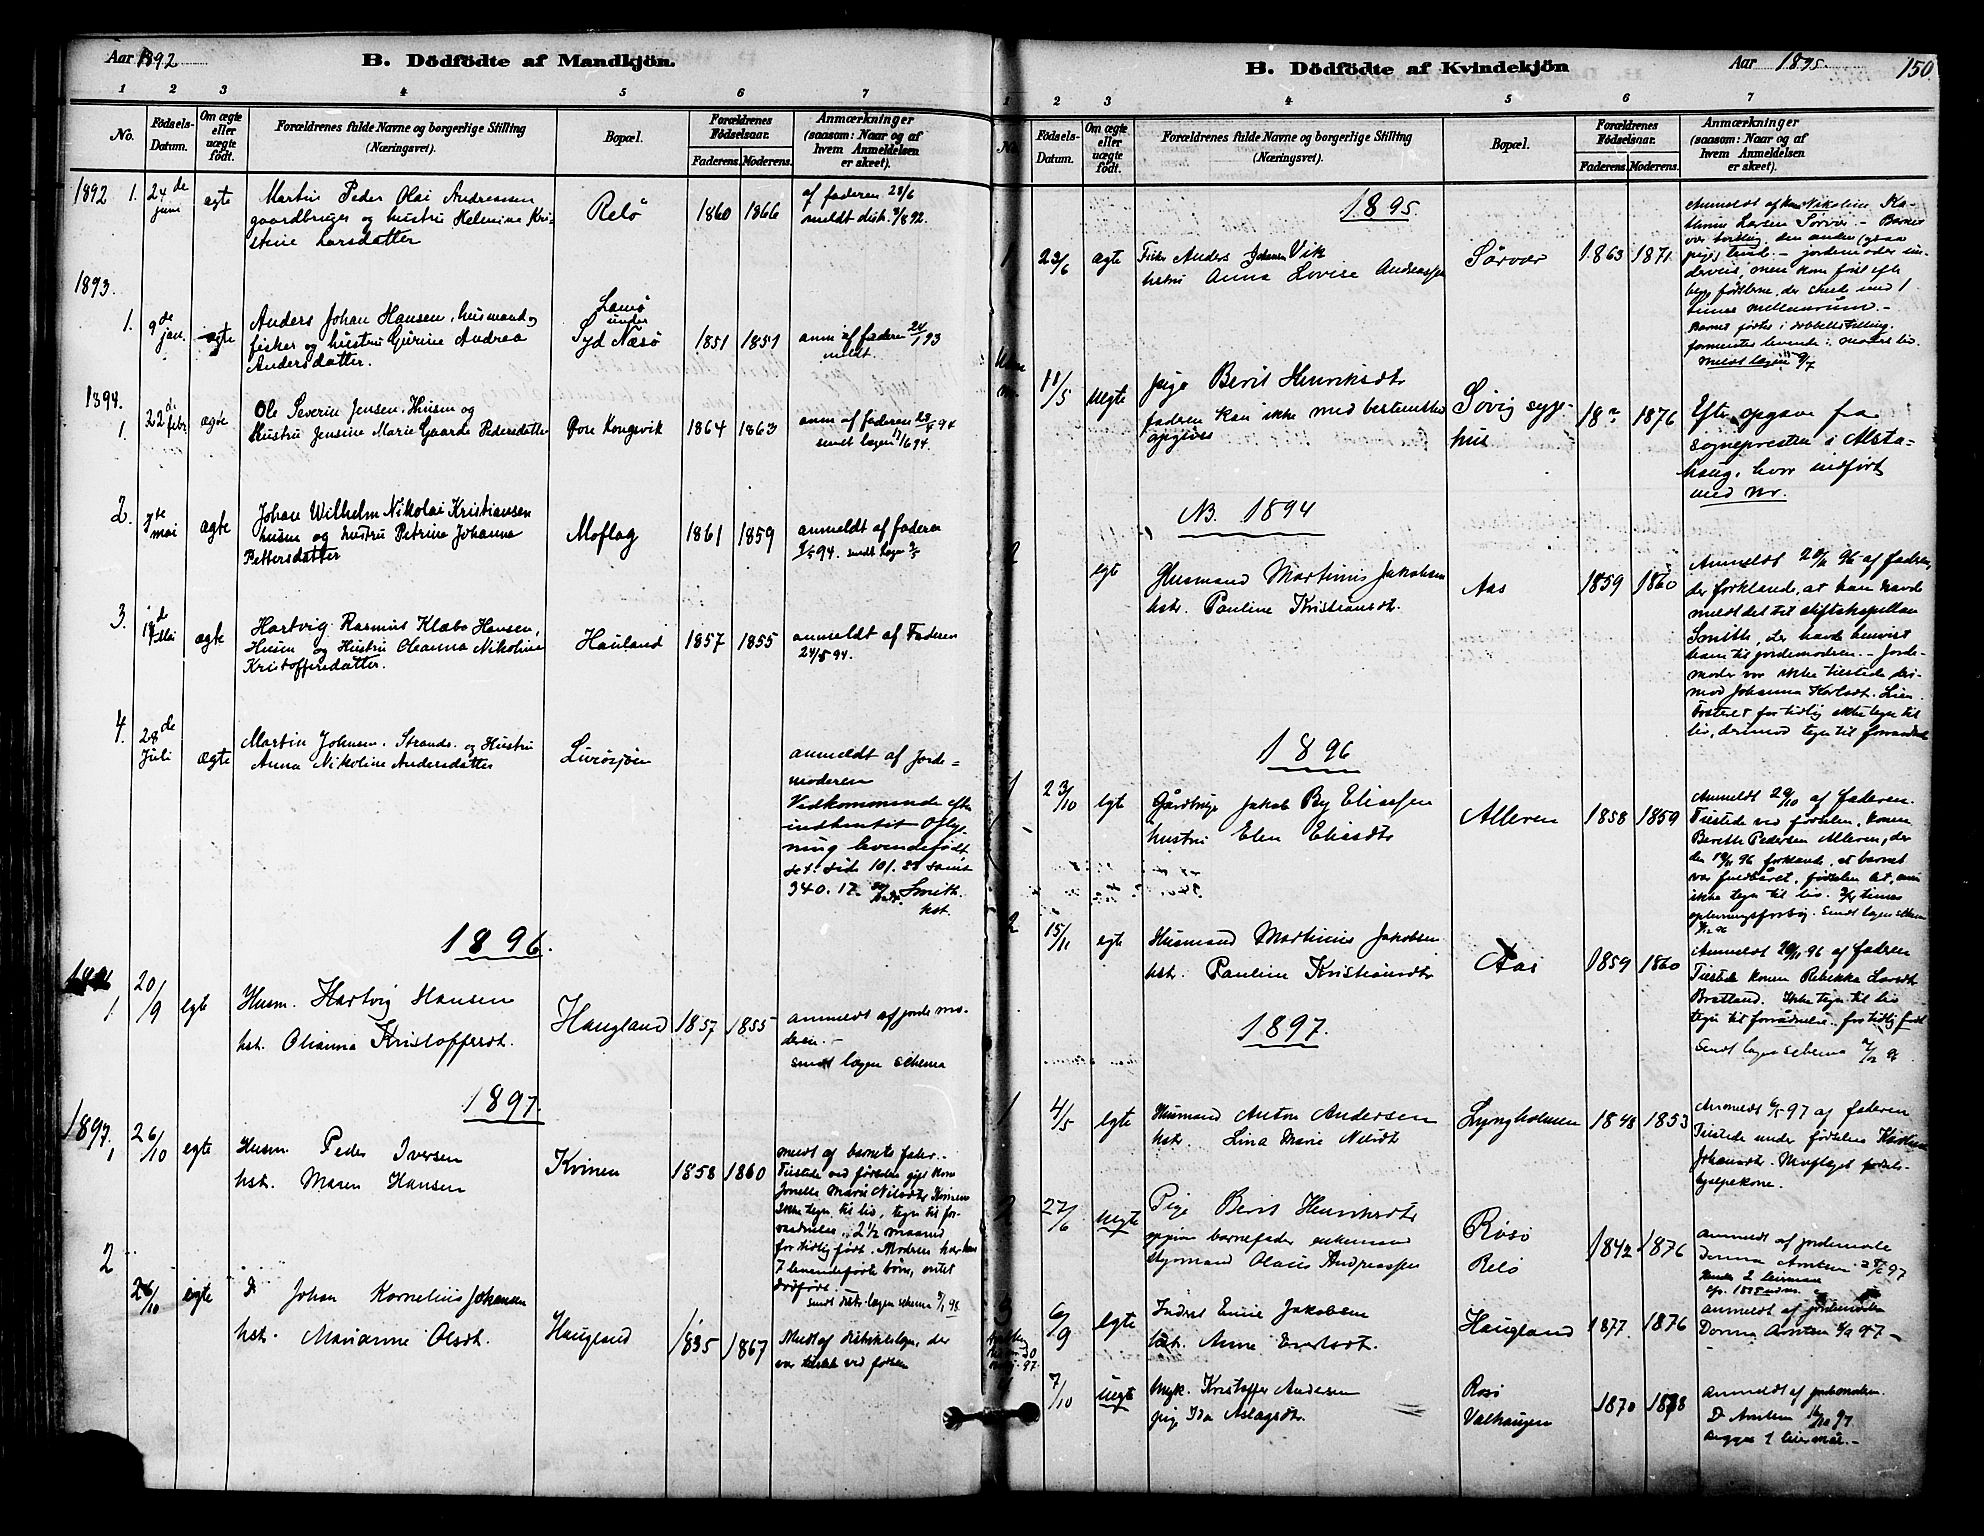 Aar 1892
B. Dödfödte af Mandkjön.
1 2 3 4 5 6 7
No.
Födsels-
Datum.
Om ægte
eller
uægte
födt.
Forældrenes fulde Navne og borgerlige Stilling
(Næringsvei).
Bopæl.
Forældrenes
Födselsaar.
Faderens. Moderens.
Anmærkninger
(saasom: Naar og af
hvem Anmeldelsen
er skeet).
1892 1. 24de juni ægte
Martin Peder Olai Andreassen
gaardbruger og hustru Helmine Kri-
stine Larsdatter
Relö 1860 1866
af faderen 28/6
meldt distr. 3/8 92.
1893.
1. 9de jan. ægte
Anders Johan Hansen, husmand og
fisker og hustru Gurine Andrea
Andersdatter.
Lamö
under
Syd Næsö
1851 1851
anm af faderen 24/1 93
meldt
1894.
1. 22de febr ægte
Ole Severin Jensen. Husm og
Hustru Jensine Marie Gaarde Pedersdatter
Kongsvik 1864 1863
anm af faderen
sendt lægen
2. 7de mai ægte
Johan Wilhelm Nikolai Kristiansen
husm og hustru Petrine Johanna
Pettersdatter
Moflag 1861 1859
anmeldt af faderen
94. sendt lægen
3. ægte
Hartvig Rasmus Klæbo Hansen,
Husm og Hustru Oleanna Nikoline
Kristoffersdatter.
Hauland 1857 1855
anmeldt af Faderen
24/5 94.
4. 28de Juli ægte
Martin Johnsen. Strands. og Hustru
Anna Nikoline Andersdatter
Lurösjöen
anmeldt af Jorde-
moderen
Vedkommende efter
indhentet Oply-
ning levendefödt
set side 101. 88 samt
340. 17. Smith.
kst.
1896.
1896
1. 20/9 egte
Husm. Hartvig Hansen
hst. Olianna Kristoffersdt.
Haugland 1857 1855
anmeldt af jordemo-
deren.-
sendt lægen schema
1897.
1897.
1 26/10 egte
Husm. Peder Iversen
hst. Maren Hansen
Kvinen 1858 1860
meldt af barnets fader.-
Tilstede ved födselen gift kone
Marie Nilsdtr Kvinen
Ikke tegn til liv, tegn til for-
raadnelse. 2½ maaned
for tidlig födt. Moderen har havt
7 levendeföbte börn, intet
dödfödt.
sendt distr. lægen schema 98.
2
26/10 egte
D Johan Kornelius Johansen
hst. Marianne Olsdt.
Haugland 1835 1867
Meldt af distriktslægen, der
var tilstede ved födsen
B. Dödfödte af Kvindekjön
Aar 1895.
150
1 2 3 4 5 6 7
No.
Födsels-
Datum.
Om ægte
eller
uægte
födt.
Forældrenes fulde Navne og borgerlige Stilling
(Næringsvei).
Bopæl.
Forældrenes
Födselsaar.
Faderens. Moderens.
Anmærkninger
(saasom: Naar og af
hvem Anmeldelsen
er skeet).
1895
1 23/6 ægte
Fisker Anders Johansen Vik
hustru Anna Lovise Andreassen
Sörvær 1863 1871
Anmeldt af kone Nikoline Ka-
thrine Larsen Sörvær - Barnet
var tvilling, den anden (ogsaa
pige) levde. - jordemoder un-
derveis, men kom först efter
begge födslerne, der skede med 1
times mellemrum.-
Barnet fødtes i dobbeltstilling.
formentes levende i moders liv.
Meldt lægen 9/7
11/5 uegte
pige Berit Henriksdtr
faderen kan ikke med bestemthed
opgives
Sövig syge-
hus
18? 1876
Efter opgave fra
sognepresten i Alsta-
haug, hvor indført
med nr.
NB. 1894
2 egte
Husmand Martinus Jakobsen
hstr. Pauline Kristiansdt.
Aas 1859 1860
Anmeldt 96 af faderen,
der forklarede, at han havde
meldt det til stiftskapellan
Smith, der havde henvist
ham til jordemoderen. - Jorde-
moder var ikke tilstede der-
imod Johanna Karlsdt. Lien
Fosteret for tidlig ikke tegn til
liv, derimod tegn til forraadnelse
1896
1 23/10 egte
Gårdbruger Jakob By Eliassen
hustru Elen Eliasdtr
Alleren 1858 1859
Anmeldt 29/10 af faderen.
Tilstede ved födselen, konen
Berethe Pedersen Alleren, der
den 96 forklarede, at barnet
var fuldbåret, födselen let, men
ikke tegn til liv. times
oplivningsforsög. Sendt lægen schema
2 15/11 egte
Husmand Martinus Jakobsen
hst. Pauline Kristiansdtr
Aas 1859 1860
Anmeldt 96 af faderen
Tilstede konen Rebekka Larsdtr
Bratland. Ikke tegn til liv
tegn til forrådnelse. for tidlig födt
Sendt lægen schema
1897.
1 4/5 egte
Husmand Anton Andersen
hstr. Lina Marie Nilsdt
Lyngholmen 1848 1853
Anmeldt 6/5 97 af faderen
Tilstede under födselen Karoline
Johansdt. Moflaget födsels-
hjelpekone.
27/6 uegte
Pige Berit Henriksdtr
opgiven barnefader enkemand
styrmand Olaus Andreassen
Rösö
Relö
1842 1876
Anmeldt af jordemoder
Dorma Arntsen 97
Hendes 2 leiermaal
cfr. 1895
3 6/9 egte
Inderst Emil Jakobsen
hst. Anne Evertsdt.
Haugland 1877 1876
anmeldt af jordemoderen
Dorma Arntsen 97 -
7/10 uegte
Ungk. Kristoffer Andersen
pige Ida Aslagsdt.
Rösö
Valhaugen
1870 1878
Anmeldt af jordemoderen.
D Arntsen 97.
Begges 1 leiermål.-